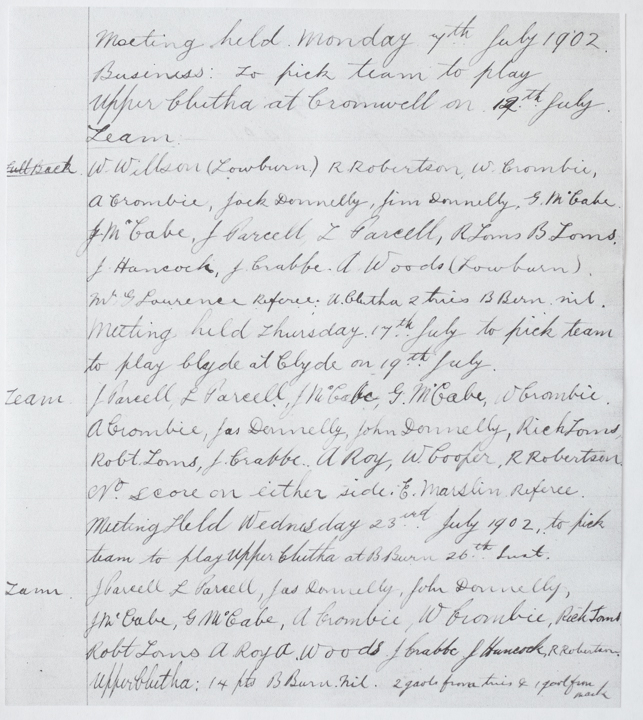 Meeting held Monday 7th July 1902.
Business: To pick team to play
Upper Clutha at Cromwell on 12th July.
Team:
Full Back W. Willson (Lowburn) R Robertson, W. Crombie,
A Crombie, Jack Donnelly, Jim Donnelly, G. McCabe.
J. McCabe, J Parcell, L Parcell, R Toms B Toms.
J Hancock, J. Crabbe. A Woods (Lowburn).
Mr G Lourence Referee: U. Clutha 2 tries B Burn. nil.
Meeting held Thursday 17th July to pick team
to play Clyde at Clyde on 19th July.
Team J Parcell, L Parcell, J McCabe, G. McCabe, W Crombie.
A Crombie, Jas Donnelly, John Donnelly, Rich Toms,
Robt. Toms, J. Crabbe. A Roy, W Cooper, R Robertson.
No score on either side: E. Marslin Referee.
Meeting Held Wednesday 23rd July 1902, to pick
team to play Upper Clutha at B Burn 26th Inst.
Team. J Parcell L Parcell, Jas Donnelly, John Donnelly,
J McCabe, G McCabe, A Crombie, W Crombie, Rich Toms
Robt Toms A Roy A. Woods J Crabbe J Hancock, R Robertson.
Upper Clutha: 14 pts B Burn. Nil. 2 goals from tries & 1 goal from
mark